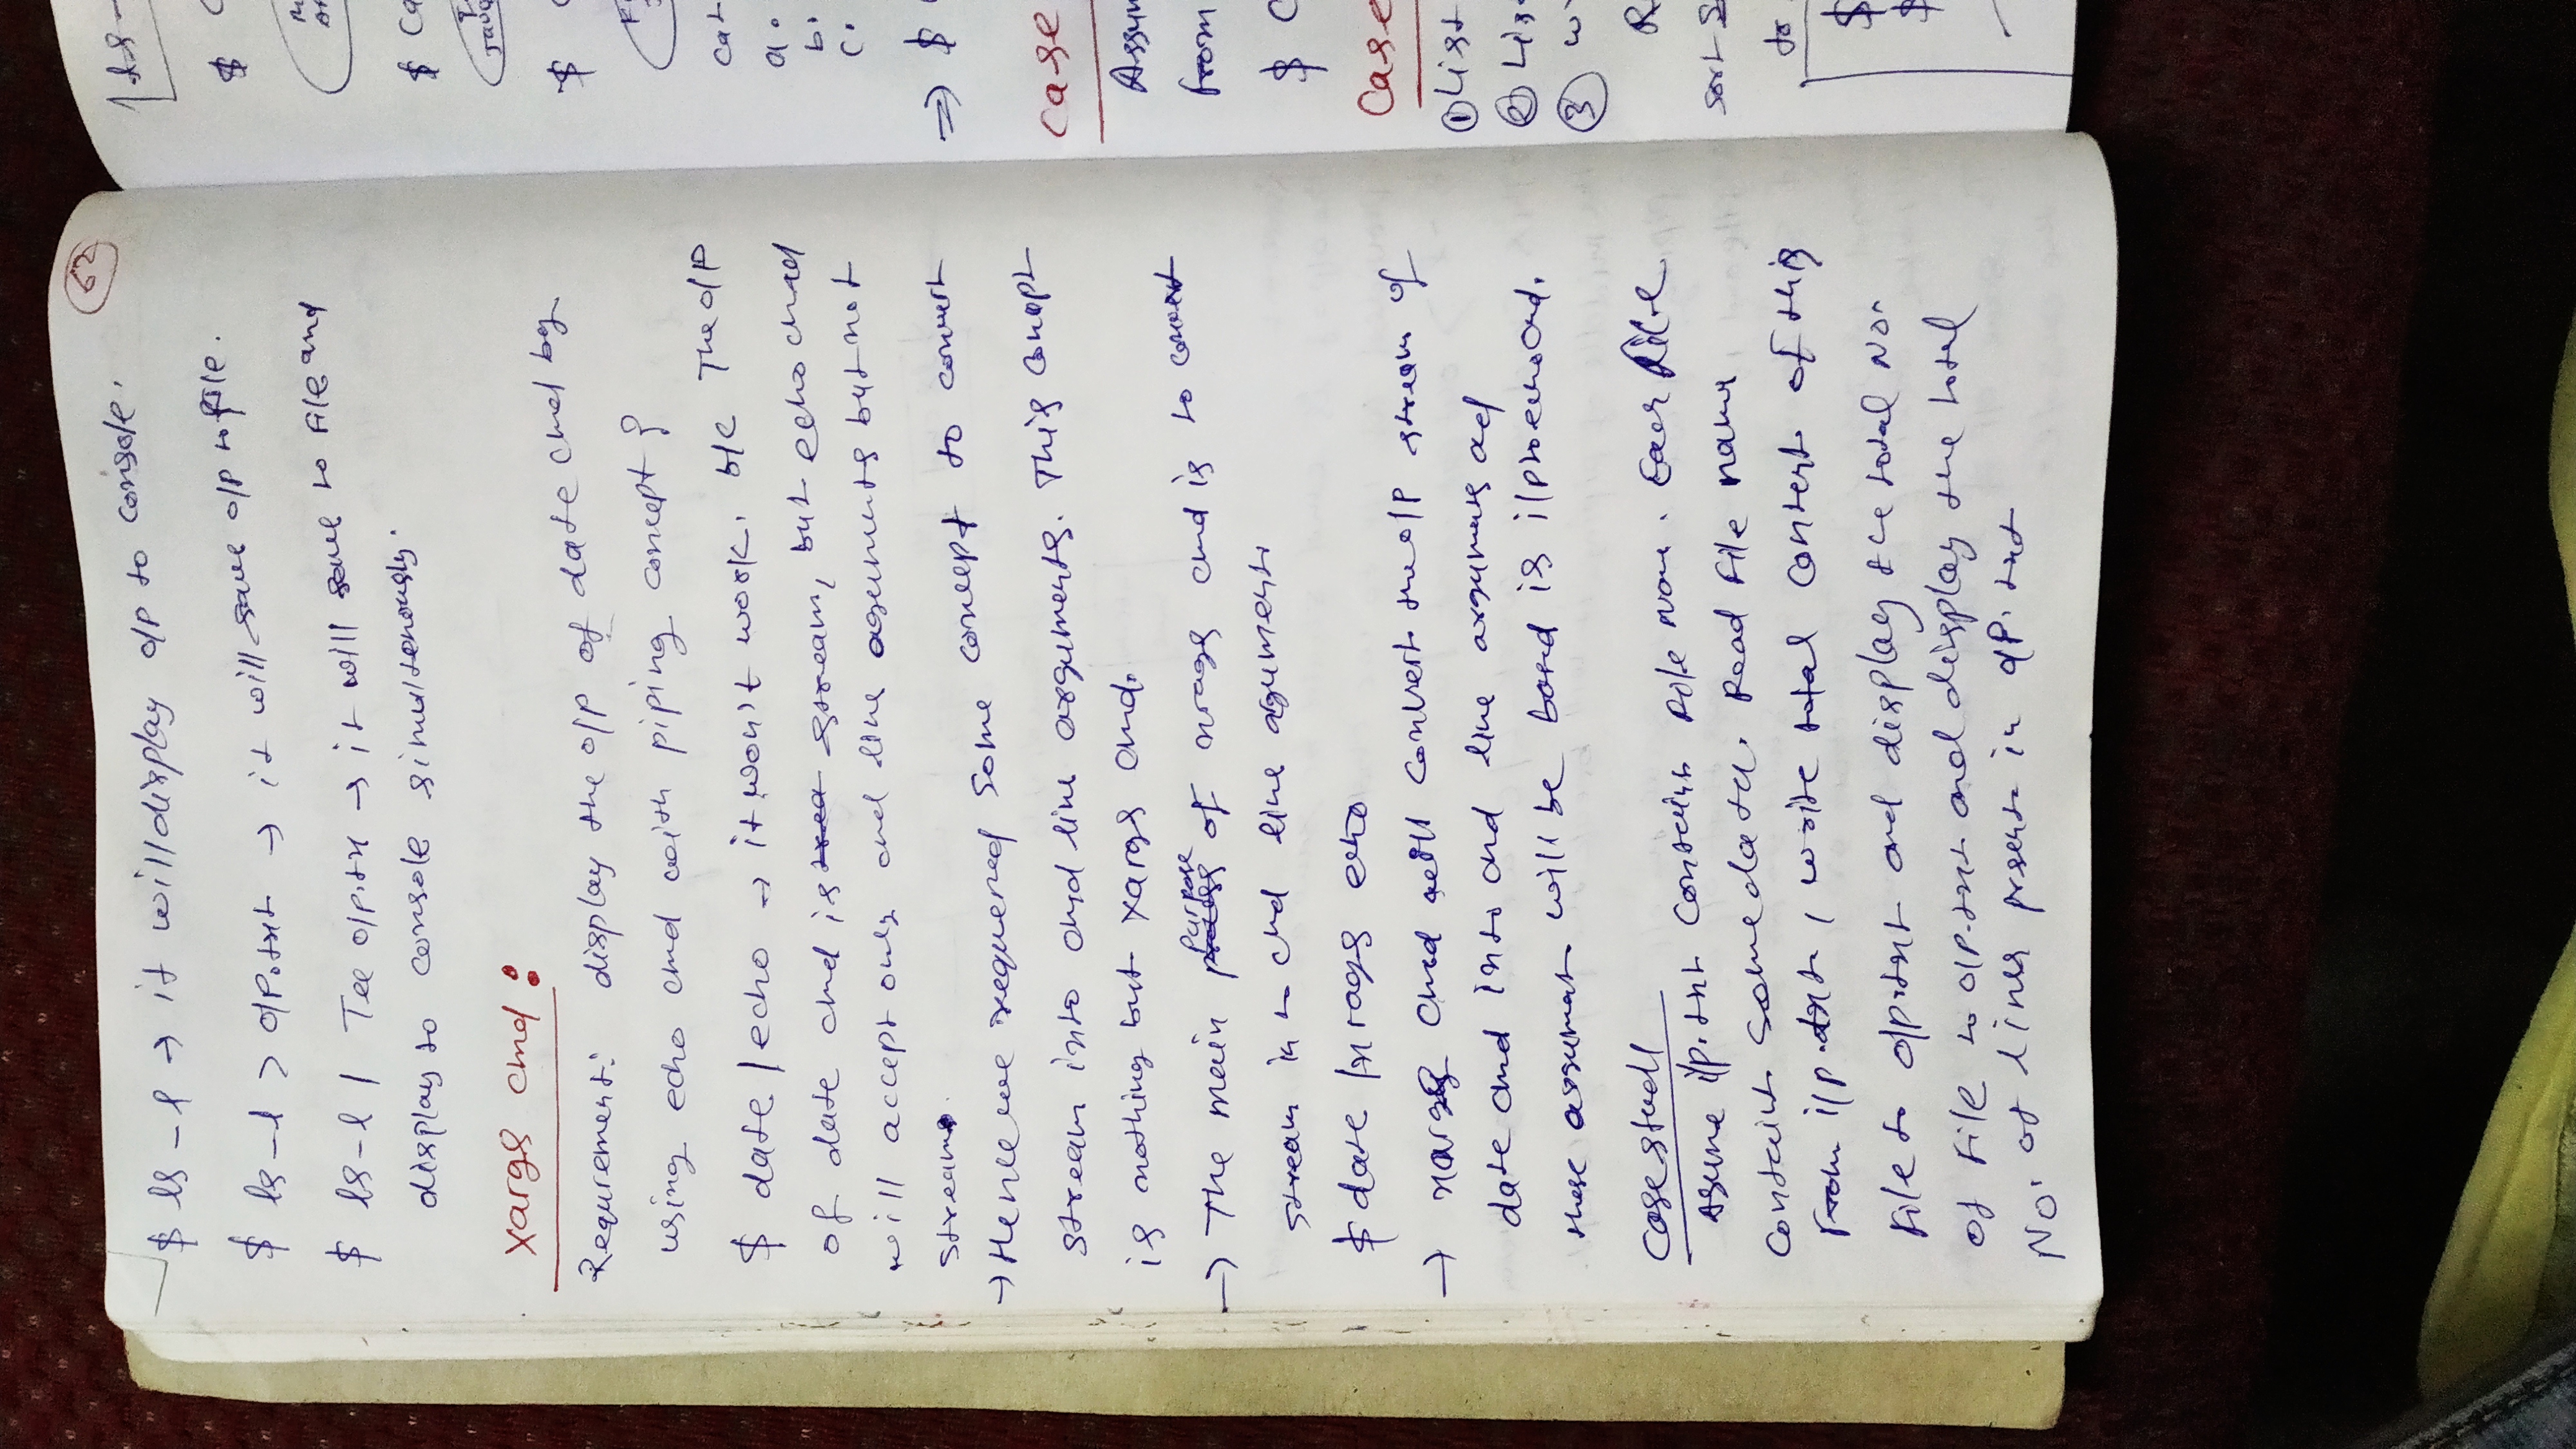 62
$ ls -l → it will display o/p to console.
$ ls -l > o/p.txt → it will save o/p to file.
$ ls -l | Tee o/p.txt → it will save to file and
display to console simultaneously.
xargs cmd:
Requirement: display the o/p of date cmd by
using echo cmd with piping concept?
$ date | echo → it won't work. b/c The o/p
of date cmd is stream, but echo cmd
will accept only cmd line aguments but not
stream.
→ Hence we requered some concept to convert
stream into cmd line arguments. This concept
is nothing but xargs cmd.
→ The main purpose of xrags cmd is to convert
stream in to cmd line aguments
$ date | xrags echo
→ xargs cmd will convert the o/p stream of
date cmd into cmd line arguments and
these argument will be bored is i/p to echo cmd.
Case studl
Assume i/p.txt contain file name. Each file
contain some data. Read file name
From i/p.txt, write total content of this
file to o/p.txt and display the total No.
of file to o/p.txt and display the total
No. of lines present in o/p.txt
$
$ C
$ Ca
$ C
cat
a.
b.
c.
⇒ $
Case
Assum
from
$ C
Case
① List
② Lis
③ w
R
sort
to
$
$